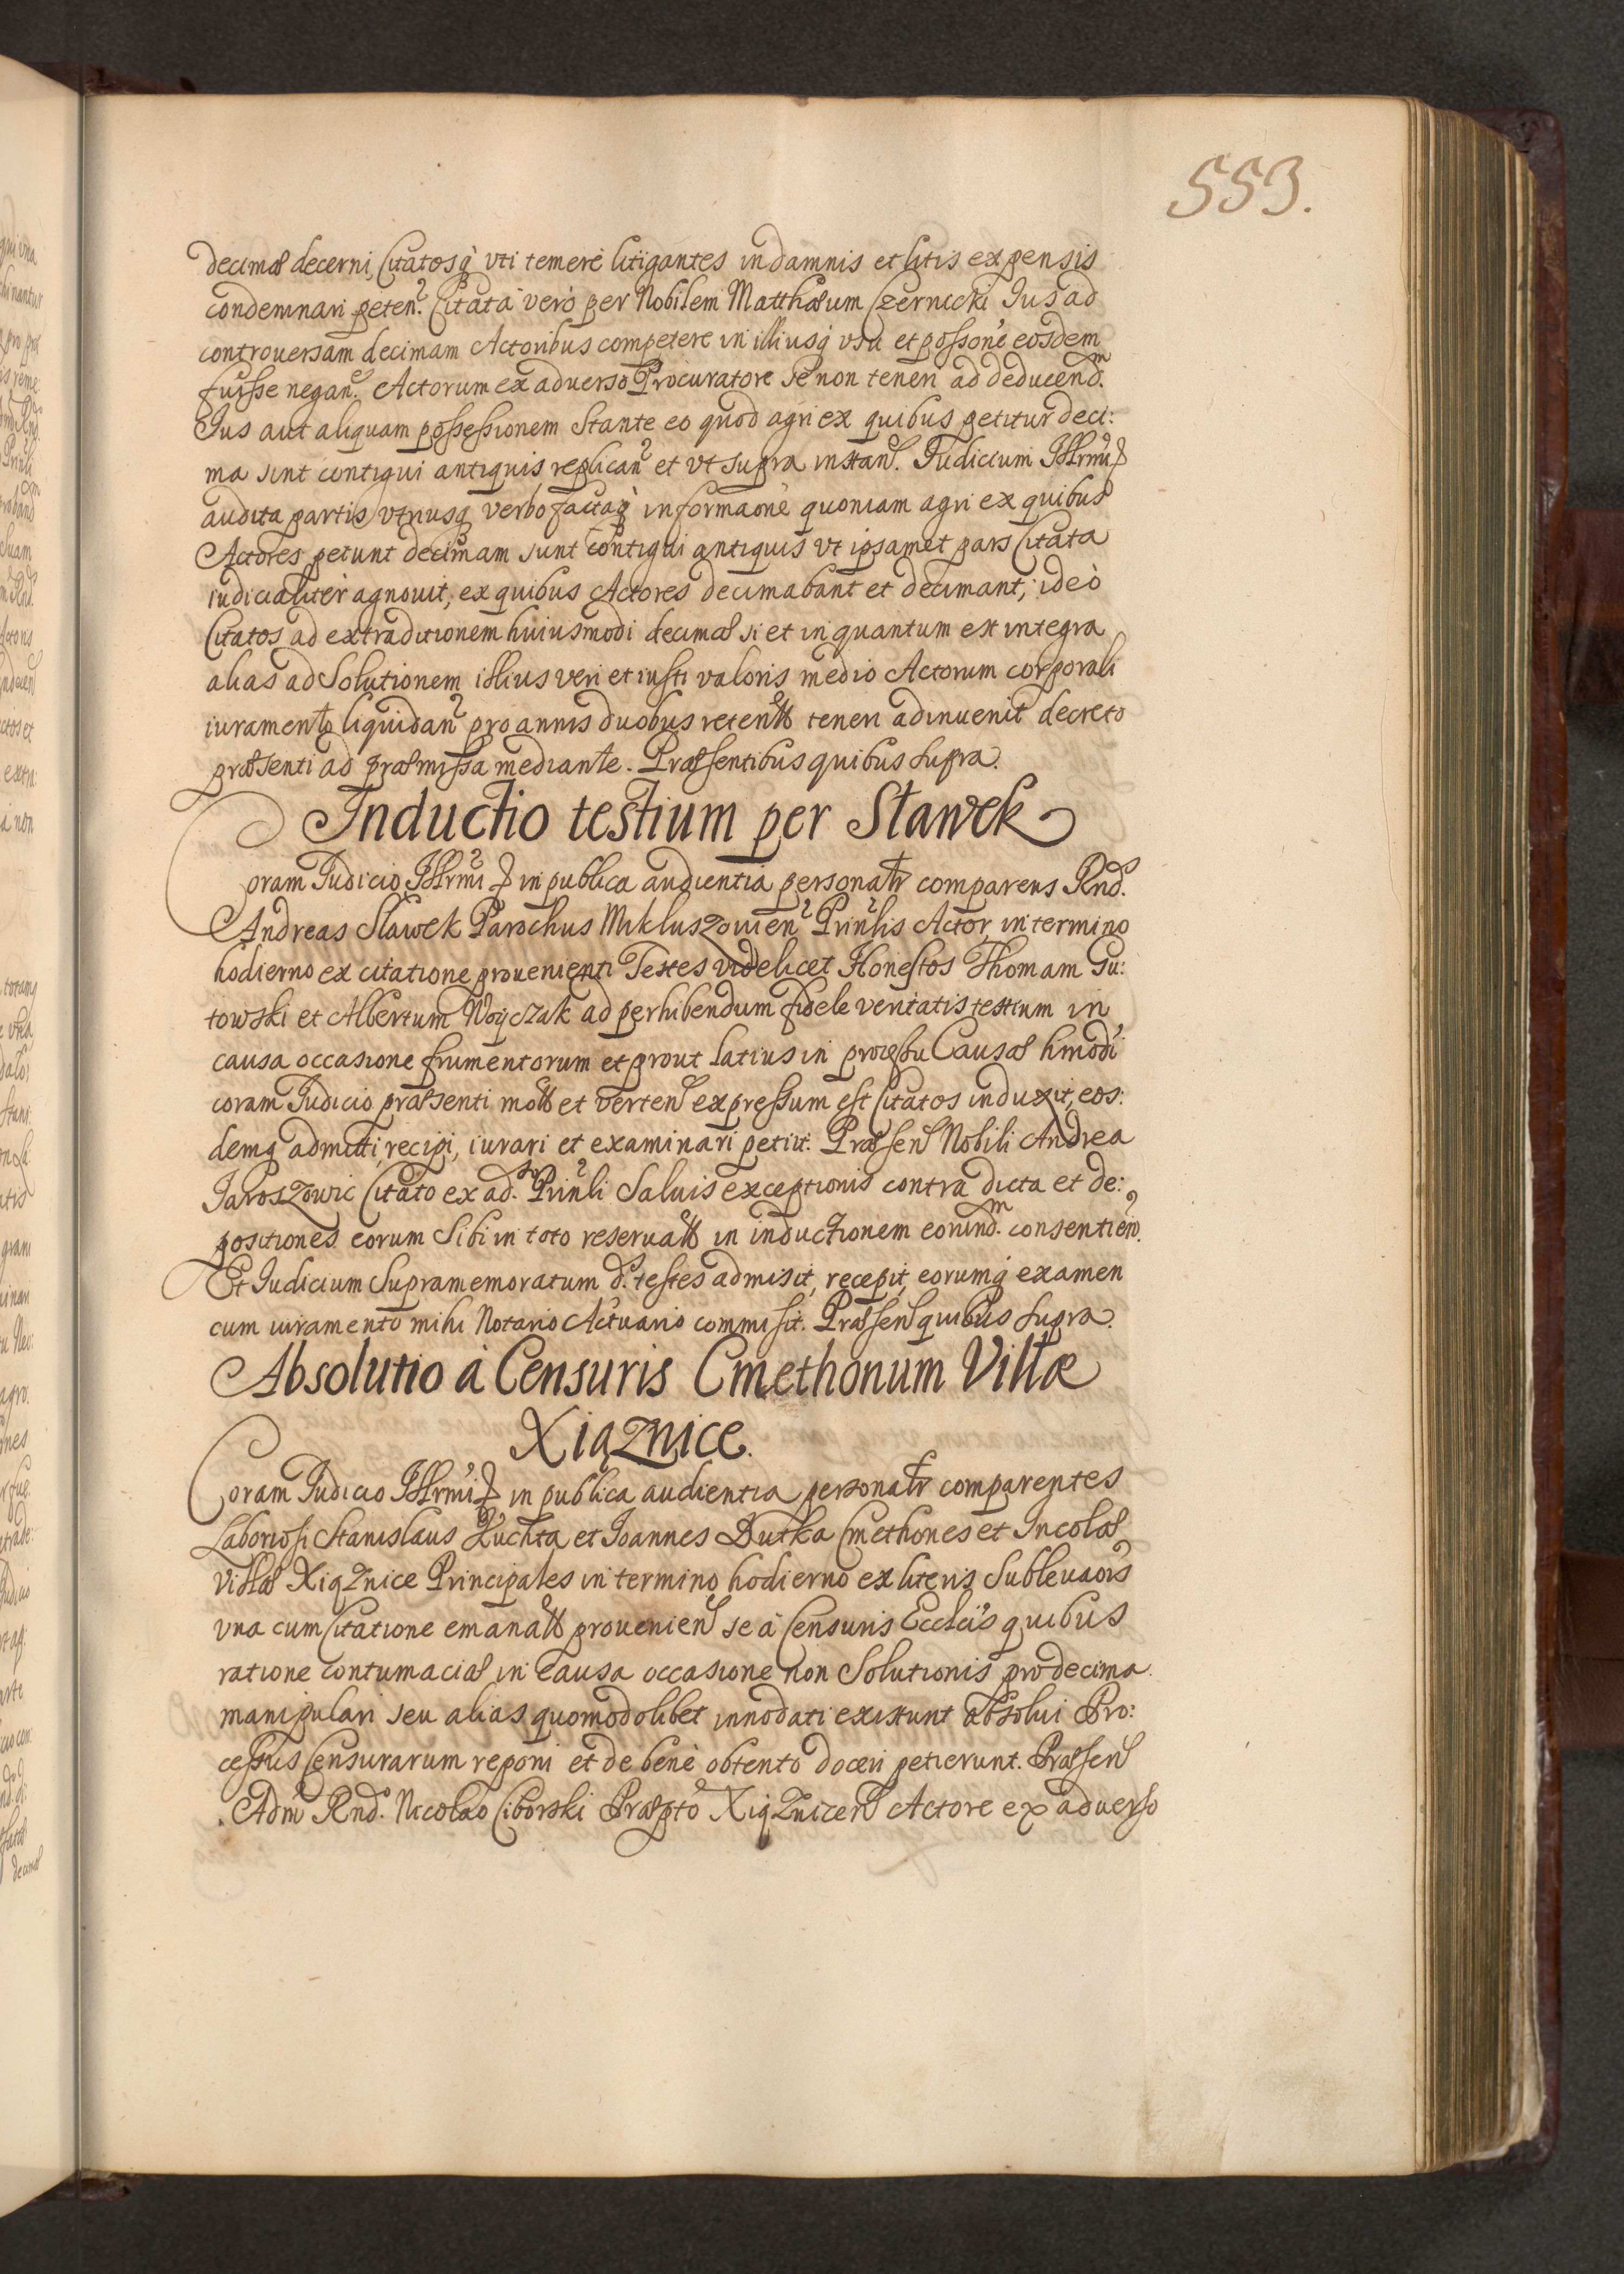 553.
decimæ decerni, Citatosq́ vti temerè litigantes in damnis et litis expensis
condemnari peten. Citata verò per Nobilem Matthæum Czernicki Jus ad
controuersam decimam Actoribus competere in illiusq́ vsu et possone eosdem
fuisse negan. Actorum ex aduerso Procuratore se non teneri ad deducend.m
Jus aut aliquam possessionem Stante eo quod agri ex quibus petitur deci:
ma sunt contigui antiquis, replican et vt supra instan. Judicium Jllrmi
audita partis vtriusq verbo factaq́ informaone quoniam agri ex quibus
Actores petunt decimam sunt contigui antiquis vt ipsamet pars Citata
iudicialitèr agnouit, ex quibus Actores decimabant et decimant, ideò
Citatos ad extraditionem huiusmodi decimæ si et in quantum est integra
alias ad Solutionem illius veri et iusti valoris medio Actorum corporali
iuramento liquidan pro annis duobus reten teneri adinuenit decreto
præsenti ad præmissa mediante. Præsentibus quibus supra.
Inductio testium per Sławek
Coram Judicio Jllrmi in publica audientia personatr comparens Rnd.
Andreas Sławek Parochus Mikluszouien Prinlis Actor in termino
hodierno ex citatione prouenienti Testes videlicet Honestos Thomam Gu:
towski et Albertum Woyczak ad perhibendum fidele veritatis testium in
causa occasione frumentorum et prout latius in processu Causæ hmodi
coram Judicio præsenti mo et verten expressum est Citatos induxit, eos:
demq admitti, recipi, iurari et examinari petiit. Præsen Nobili Andrea
Jaroszowic Citato ex ad.so Prinli Saluis exceptionis contra dicta et de:
positiones eorum Sibi in toto reserua in inductionem eorund.m consentien.
Et Judicium Supramemoratum d. testes admisit, recepit, eorumq examen
cum iuramento mihi Notario Actuario commisit. Præsen quibus supra.
Absolutio à Censuris Cmethonum Villæ
Xiąznice.
Coram Judicio Jllrmi in publica audientia personatr comparentes
Laboriosi Stanislaus Kuchta et Joannes Dutka Cmethones et Incolæ
villæ Xiąznice Principales in termino hodierno ex literis Subleuaois
vna cum Citatione emana prouenien se à Censuris Eccleis quibus
ratione contumaciæ in causa occasione non Solutionis pro decima
manipulari seu alias quomodolibet innodati existunt absolui Pro:
cessus Censurarum reponi et de benè obtento doceri petierunt. Præsen
Adm Rnd. Nicolao Ciborski Præpto Xiąznicen Actore ex aduerso